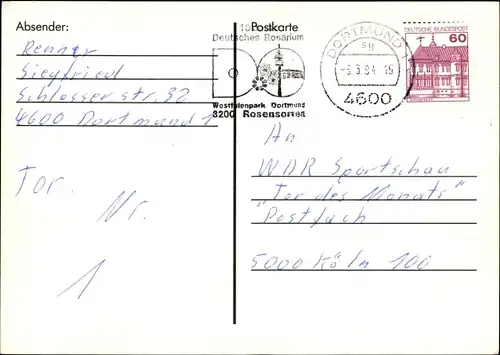 Absender:
Renner
Siegfried
Schlosserstr. 32
4600 Dortmund 1
Tor.
Nr.
1
Postkarte
Deutsches Rosarium
Westfalenpark Dortmund
3200 Rosensorten
DORTMUND 1
sg
-5.3.84-15
4600
DEUTSCHE BUNDESPOST
60
An
WDR Sportschau
"Tor des Monats"
Postfach
5000 Köln 100